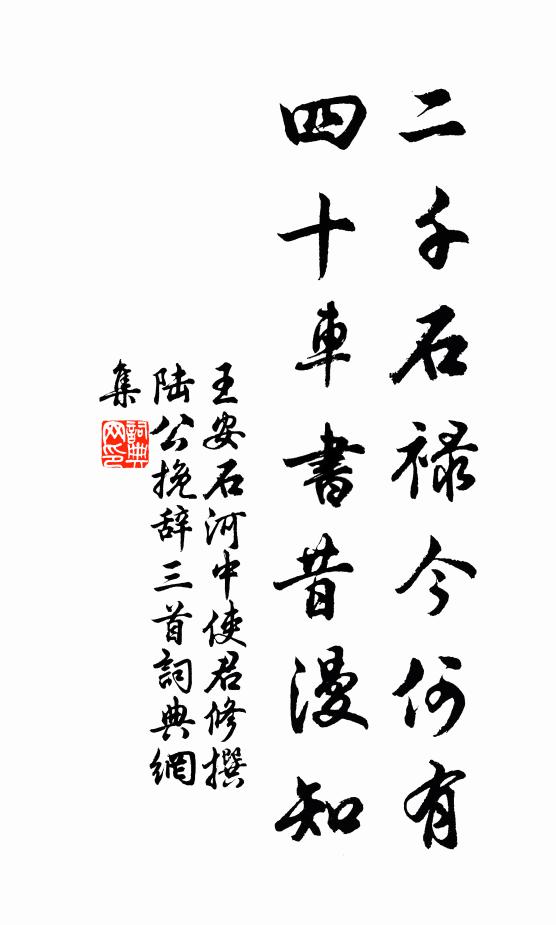 二千石禄今何有
四十車書昔漫知
王安石河中使君修撰
陆公挽辞三首詞典網
集
詞典網印